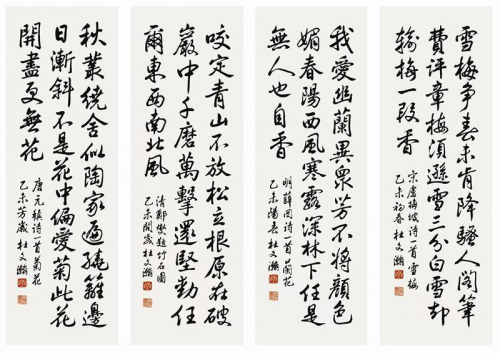 雪梅争春未肯降騷人閣筆
費評章梅須遜雪三分白雪却
輸梅一段香
宋盧梅坡詩一首雪梅
乙未初春杜文瀚
我愛幽蘭異衆芳不將顔色
媚春陽西風寒露深林下任是
無人也自香
明薛网詩一首蘭花
乙未陽春杜文瀚
咬定青山不放松立根原在破
巖中千磨萬擊還堅勁任
爾東西南北風
清鄭燮題竹石圖
乙未開歲杜文瀚
秋叢繞舍似陶家遍繞籬邊
日漸斜不是花中偏愛菊此花
開盡更無花
唐元稹詩一首菊花
乙未芳歲杜文瀚